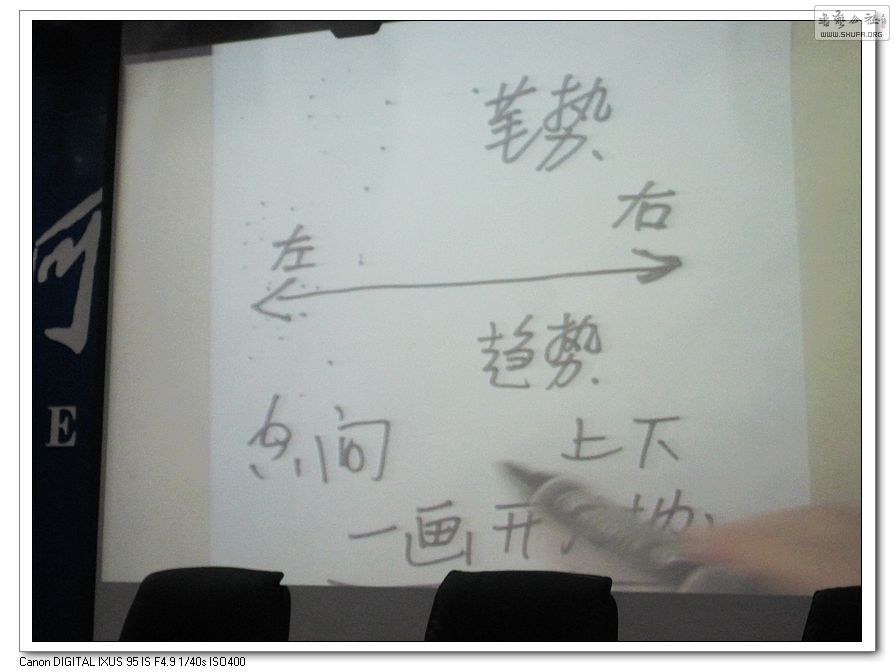 书艺公社
WWW.SHUFA.ORG
笔势
左 右
趋势
间 上下
一画开
E
Canon DIGITAL IXUS 95 IS F4.9 1/40s ISO400